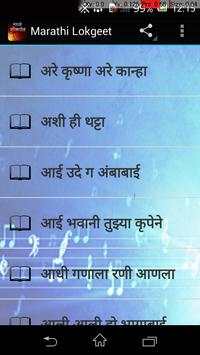 99% 12:15
Marathi Lokgeet
अरे कृष्णा अरे कान्हा
अशी ही थट्टा
आई उदे ग अंबाबाई
आई भवानी तुझ्या कृपेने
आधी गणाला रणी आणला
आली आली हो भागाबाई